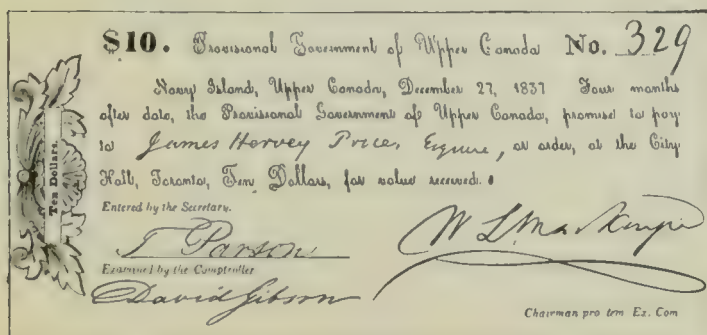 $10. Provisional Government of Upper Canada No. 329
Navy Island, Upper Canada, December 27, 1837 Four months
after date, the Provisional Government of Upper Canada, promise to pay
to James Hervey Price, Esquire, or order, at the City
Hall, Toronto, Ten Dollars, for value received.
Ten Dollars.
Entered by the Secretary.
T Parson
W L Mackenzie
Examined by the Comptroller
David Gibson
Chairman pro tem Ex. Com